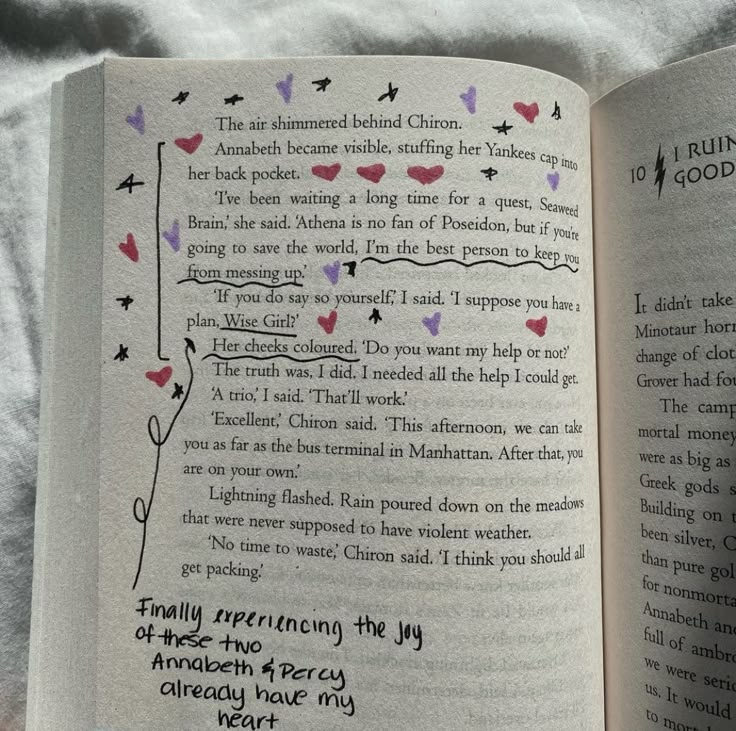 The air shimmered behind Chiron.
Annabeth became visible, stuffing her Yankees cap into
her back pocket.
'I've been waiting a long time for a quest, Seaweed
Brain,' she said. 'Athena is no fan of Poseidon, but if you're
going to save the world, I'm the best person to keep you
from messing up.'
'If you do say so yourself,' I said. 'I suppose you have a
plan, Wise Girl?'
Her cheeks coloured. 'Do you want my help or not?'
The truth was, I did. I needed all the help I could get.
'A trio,' I said. 'That'll work.'
'Excellent,' Chiron said. 'This afternoon, we can take
you as far as the bus terminal in Manhattan. After that, you
are on your own.'
Lightning flashed. Rain poured down on the meadows
that were never supposed to have violent weather.
'No time to waste,' Chiron said. 'I think you should all
get packing.'
Finally experiencing the joy
of these two
Annabeth & Percy
already have my
heart
10 I RUIN
GOOD
It didn't take
Minotaur horn
change of clot
Grover had fou
The camp
mortal money
were as big as
Greek gods s
Building on
been silver, C
than pure gol
for nonmorta
Annabeth and
full of ambro
we were serio
us. It would
to mor